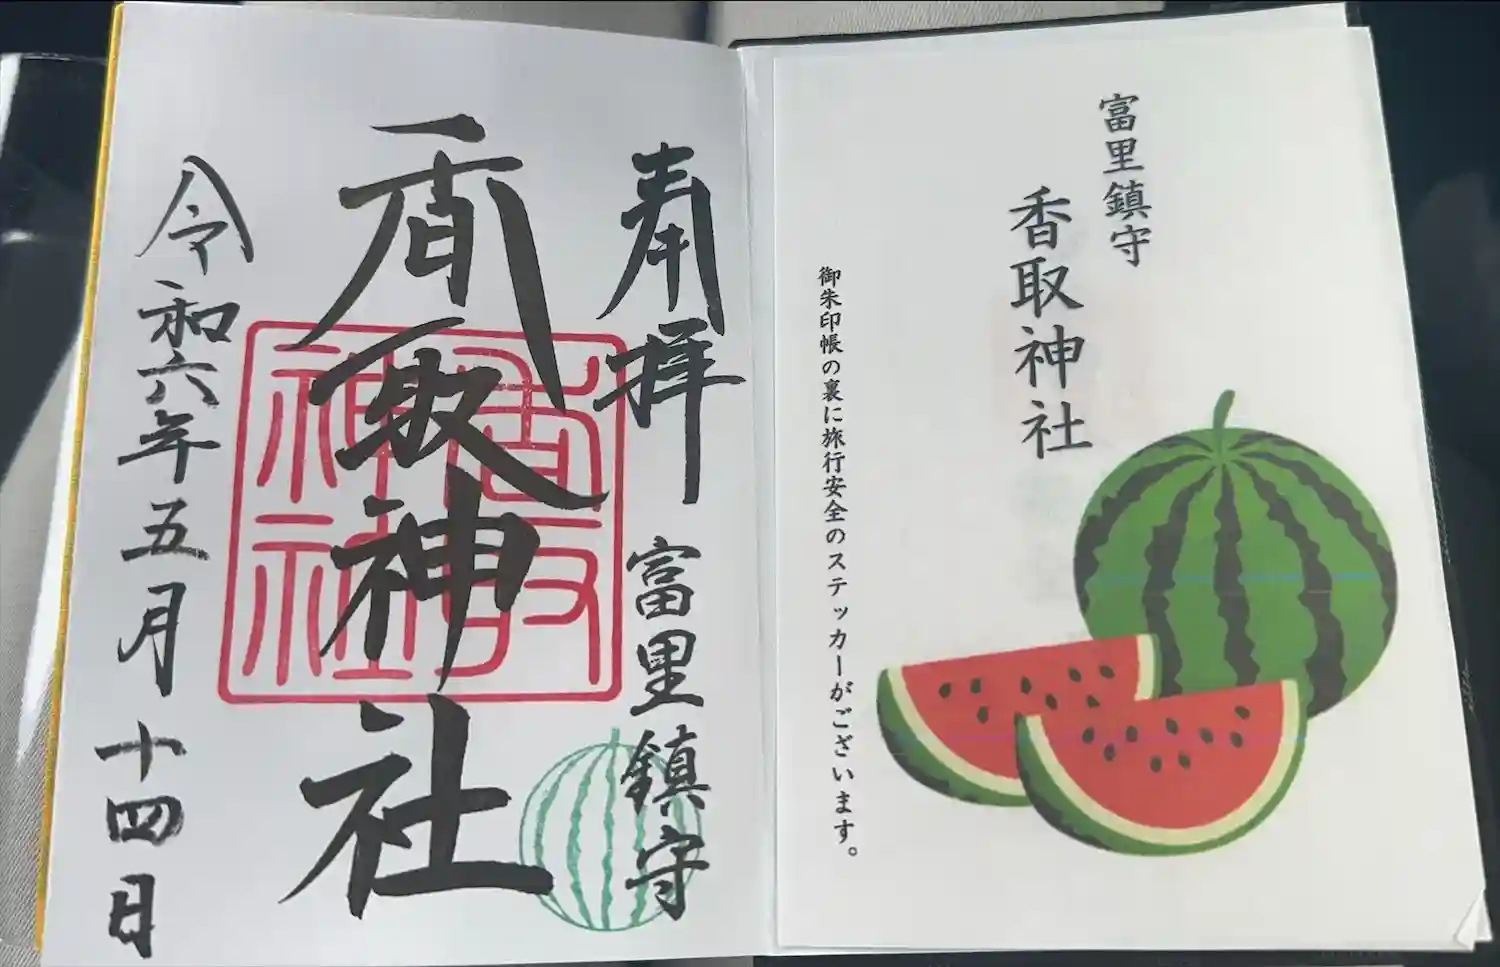 富里鎮守
香取神社
御朱印帳の裏に旅行安全のステッカーがございます。
奉拝 富里鎮守
香取神社
香取神社
令和六年五月十四日